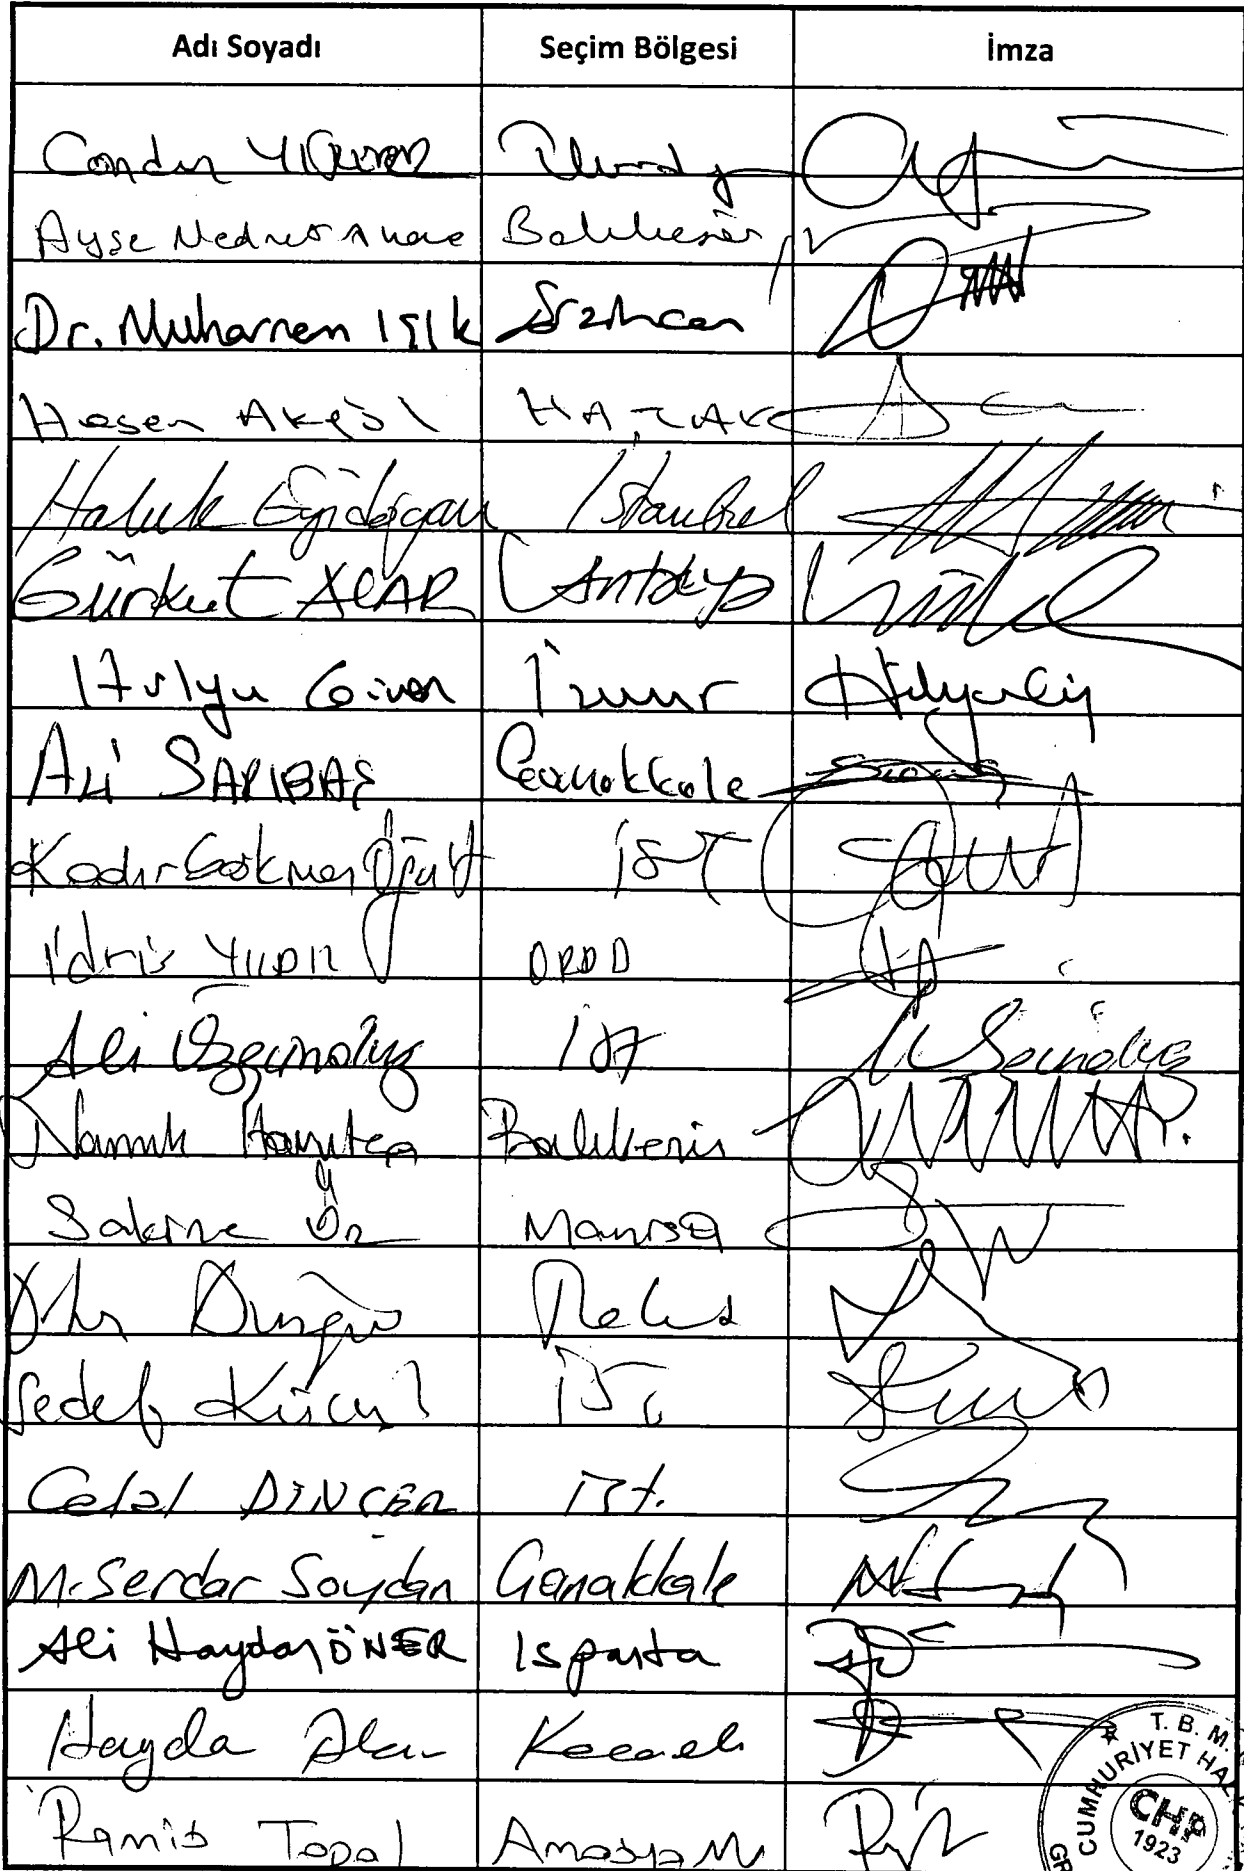 Adı Soyadı Seçim Bölgesi İmza
Candan
Ayşe Nedret Balıkesir
Dr. Muharrem IŞIK Erzincan
Hasan Akgöl HATAY
Haluk Eyidoğan İstanbul
Gürkut ACAR Antalya
Hülya Güven İzmir
ALİ SARIBAŞ Çanakkale
Kadir Gökmen Öğüt İST
İdris YILDIZ ORDU
Ali Özgündüz İST
Namık Havutça Balıkesir
Sakine Öz Manisa
Sedef Küçük İST
Celal DİNÇER İST.
M. Serdar Soydan Çanakkale
Ali Haydar ÖNER Isparta
Haydar Akar Kocaeli
Ramis Topal Amasya
T. B. M.
CUMHURİYET HAL
CHP
1923